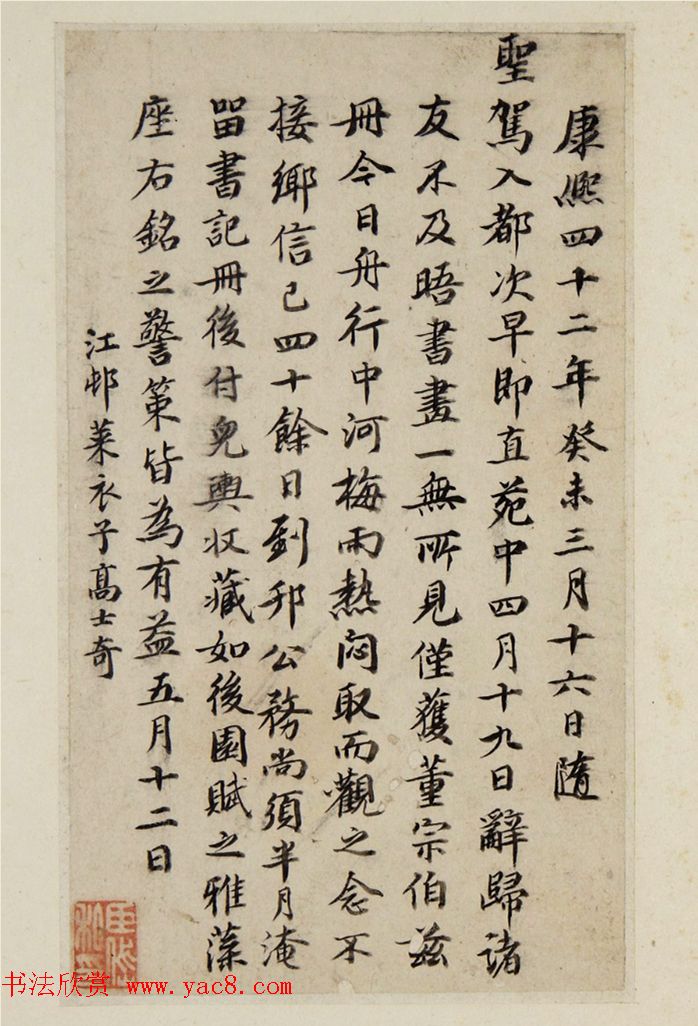 康熙四十二年癸未三月十六日隨
聖駕入都次早即直苑中四月十九日辭歸諸
友不及晤書畫一無所見僅獲董宗伯茲
冊今日舟行中河梅雨熱悶取而觀之念不
接鄉信已四十餘日到邗公務尚須半月淹
留書記冊後付兒輿收藏如後園賦之雅藻
座右銘之警策皆為有益五月十二日
江邨萊衣子高士奇
书法欣赏 www.yac8.com